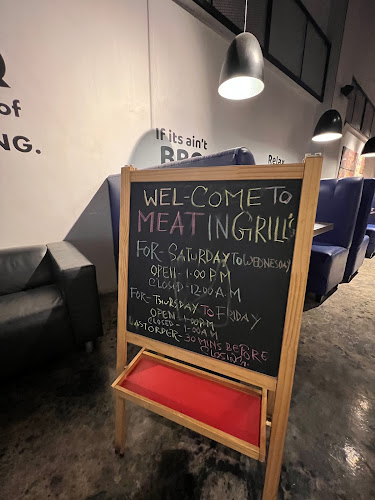 of
NG.
If its ain't
BBQ
Relax
WEL-COME TO
MEAT IN GRILL'S
FOR-SATURDAY TO WEDNESDAY
OPEN-1:00 PM
CLOSED-12:00 A.M
FOR-THURSDAY TO FRIDAY
OPEN-1:00PM
CLOSED-1:00AM
LAST ORDER-30 MINS BEFORE
CLOSING.